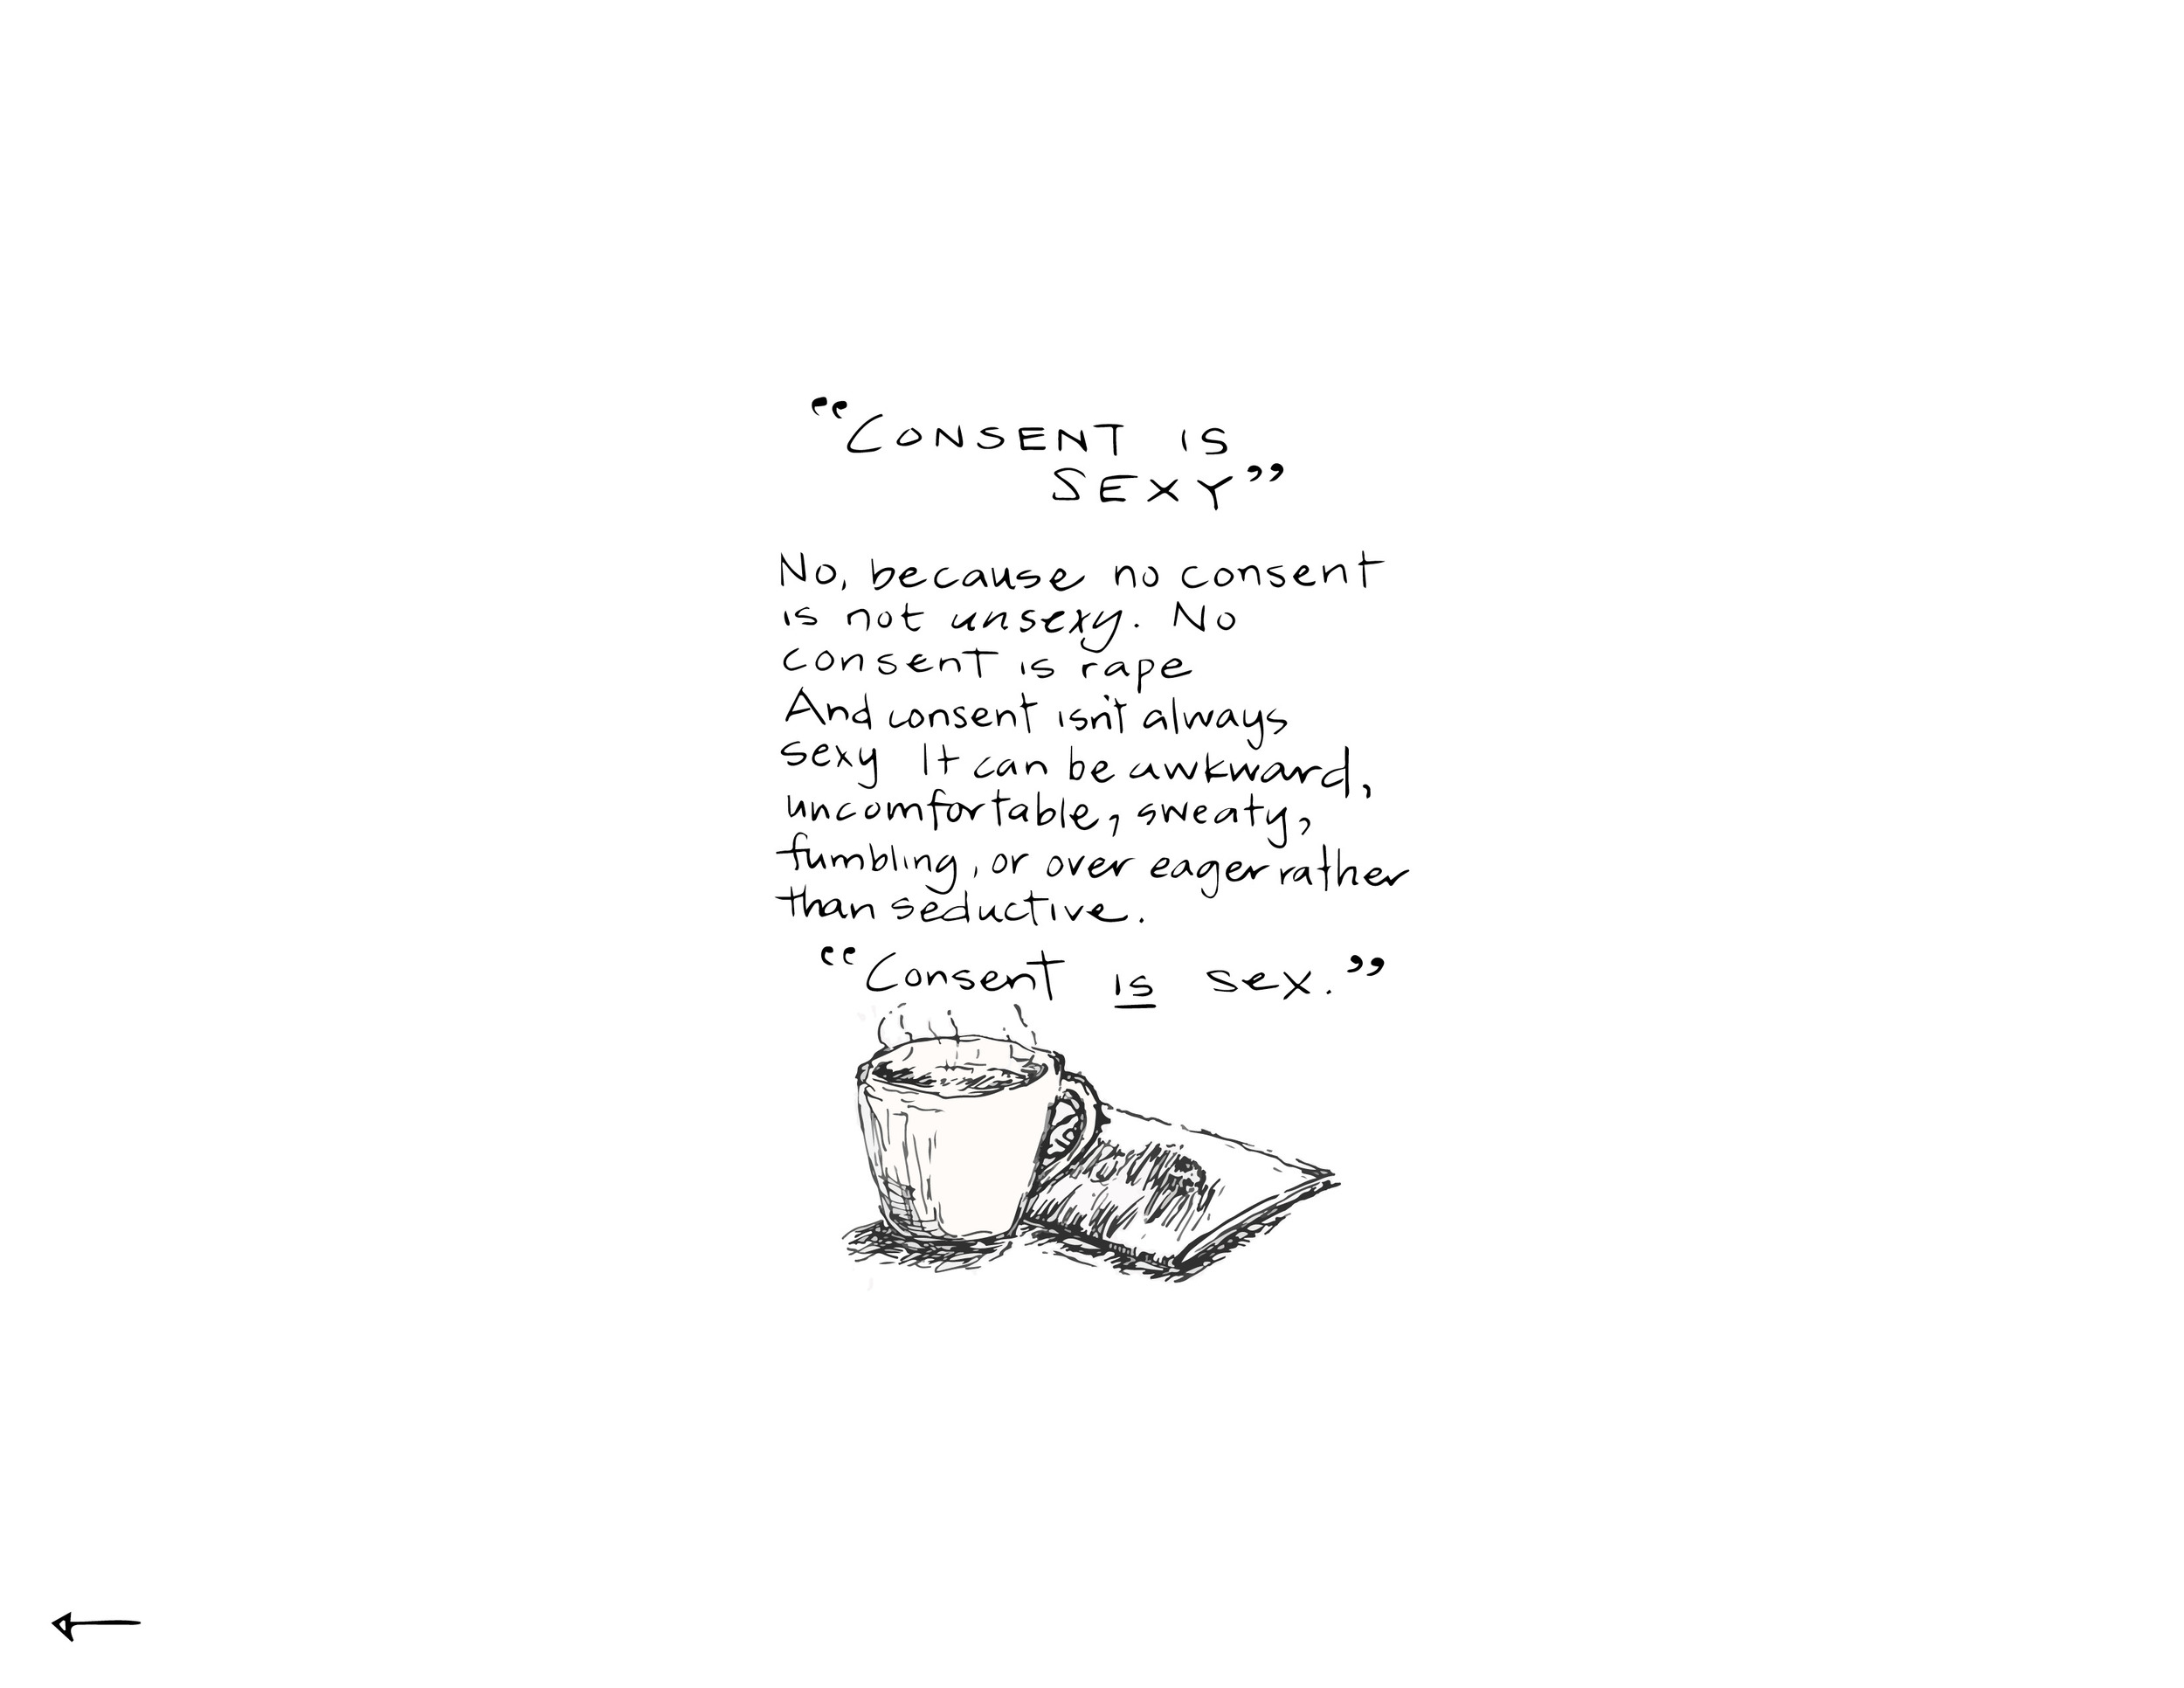 “CONSENT IS
SEXY”
No, because no consent
is not unsexy. No
consent is rape
And consent isn't always
sexy It can be awkward,
uncomfortable, sweaty,
fumbling, or over eager rather
than seductive.
“Consent is sex.”